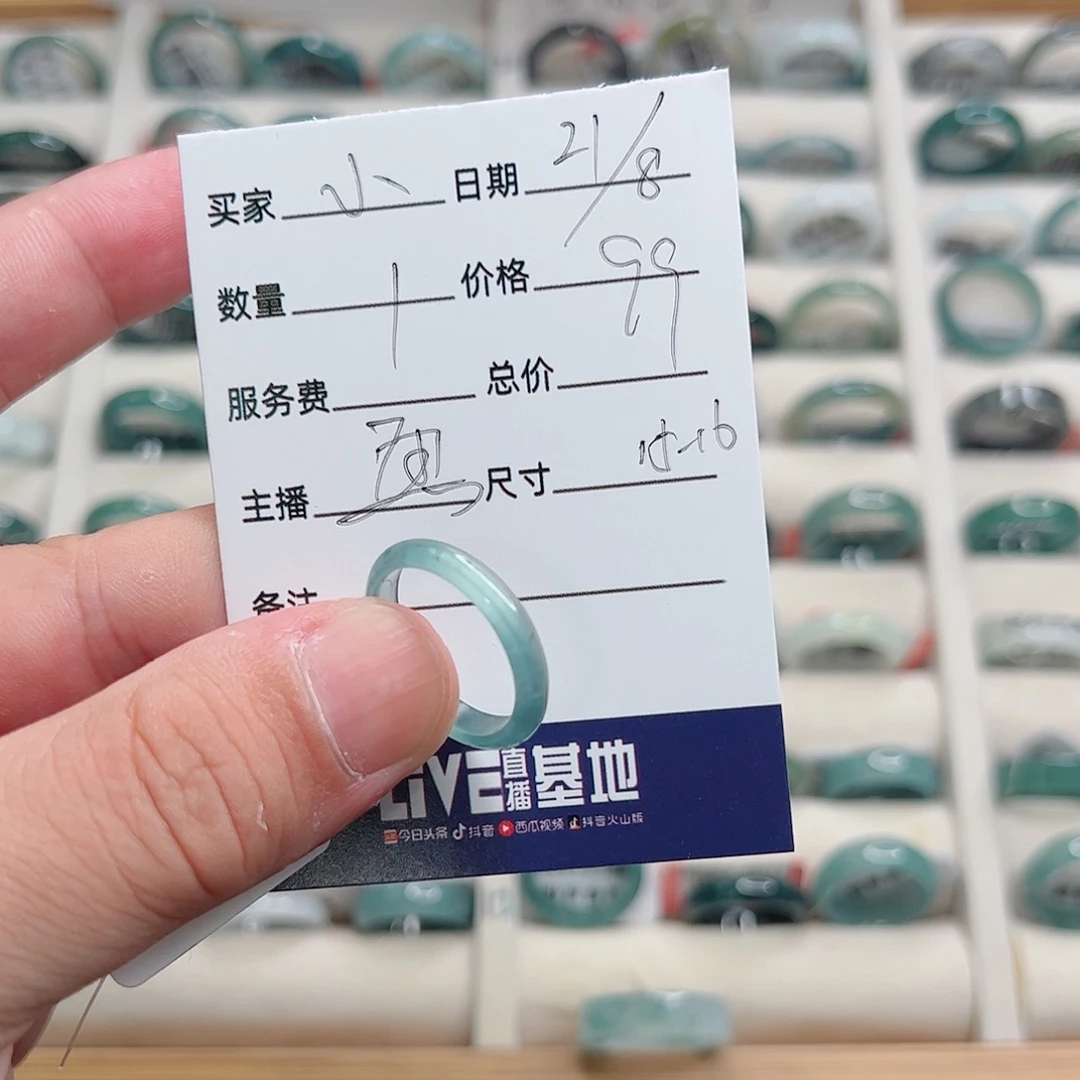 买家 小 日期 21/8
数量 1 价格 99
服务费 总价
主播 尺寸 15-16
备注
LIVE直播基地
今日头条 抖音 西瓜视频 抖音火山版